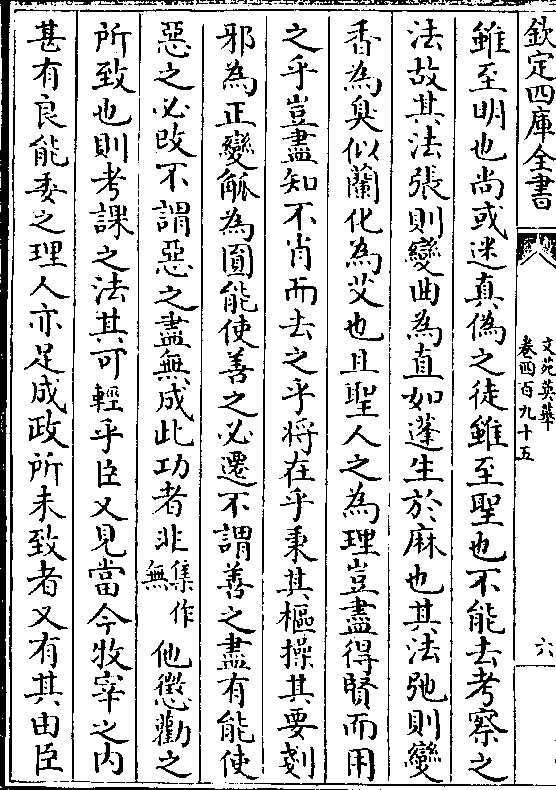 欽定四庫全書
文苑英華
卷四百九十五
六
雖至明也尚或迷真偽之徒雖至聖也不能去考察之
法故其法張則變曲為直如蓬生於麻也其法弛則變
香為臭似蘭化為艾也且聖人之為理豈盡得賢而用
之乎豈盡知不肖而去之乎将在乎秉其樞操其要剗
邪為正變觚為圓能使善之必遷不謂善之盡有能使
惡之必改不謂惡之盡無成此功者非集作無他懲勸之
所致也則考課之法其可輕乎臣又見當今牧宰之内
甚有良能委之理人亦足成政所未致者又有其由臣